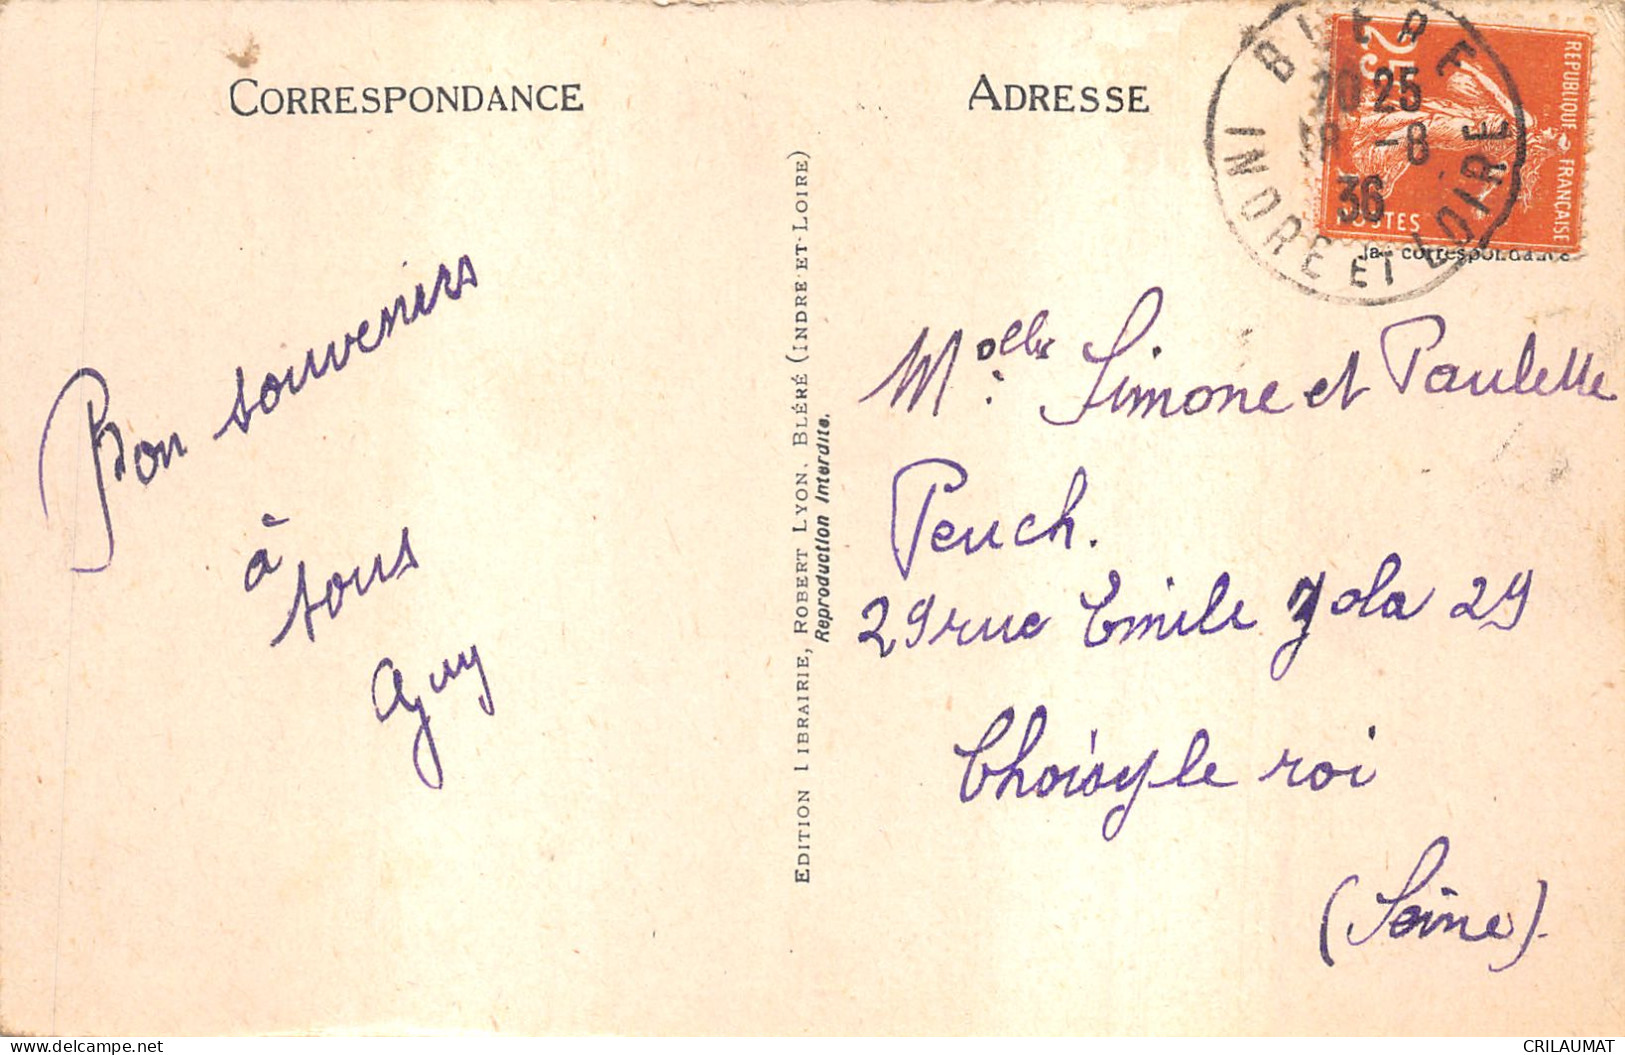 CORRESPONDANCE
ADRESSE
Bon souvenirs
à
tous
Guy
EDITION LIBRAIRIE, ROBERT LYON, BLÉRÉ (INDRE-ET-LOIRE)
Reproduction Interdite.
BLERE
25
-8
36
INDRE ET LOIRE
25
REPUBLIQUE FRANÇAISE
POSTES
la correspondance
Melles Simone et Paulette
Peuch.
29 rue Emile Zola 29
Choisy le roi
(Seine).
delcampe.net
CRILAUMAT